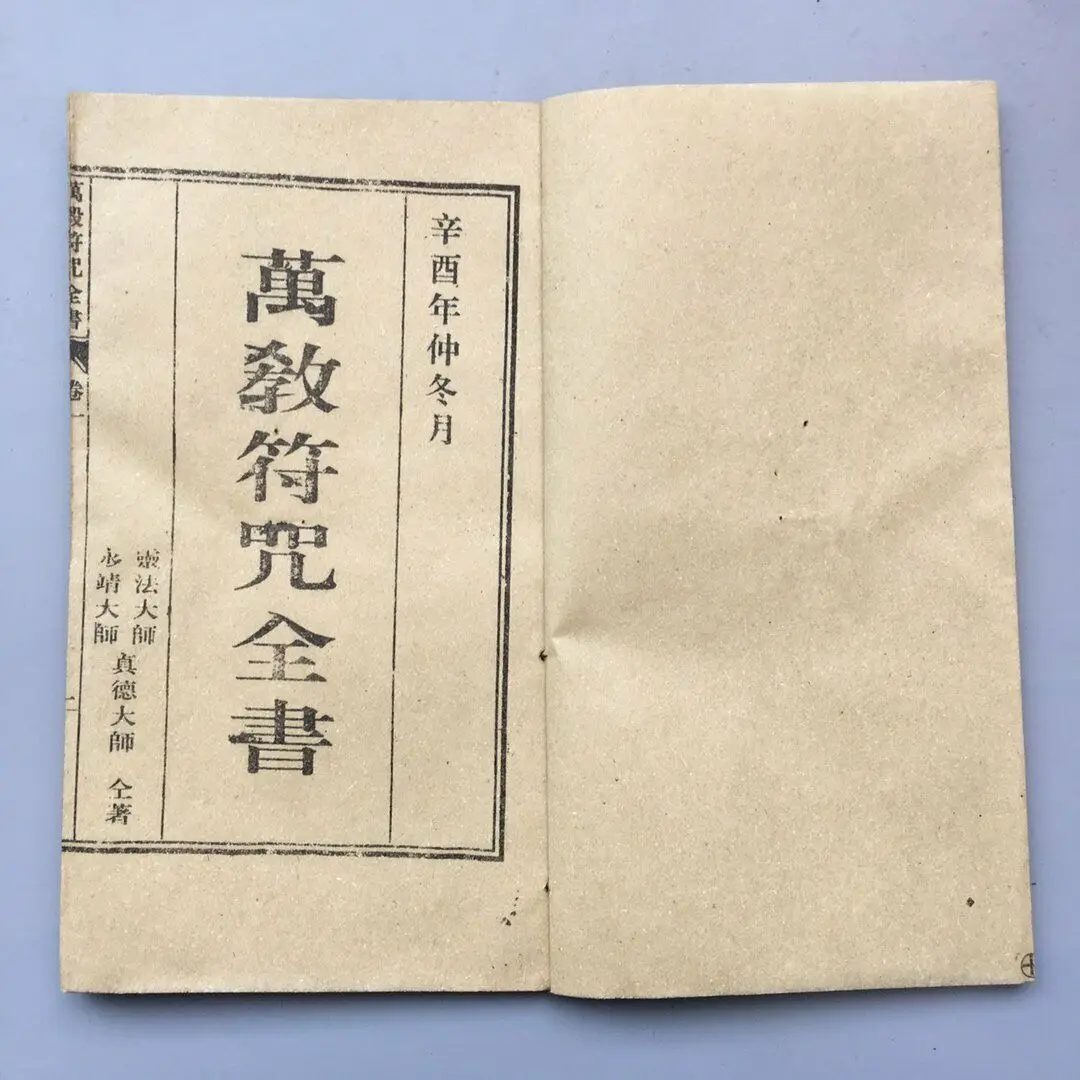 辛酉年仲冬月
萬教符咒全書
靈法大師
永靖大師
真德大師
仝著
萬教符咒全書
卷一